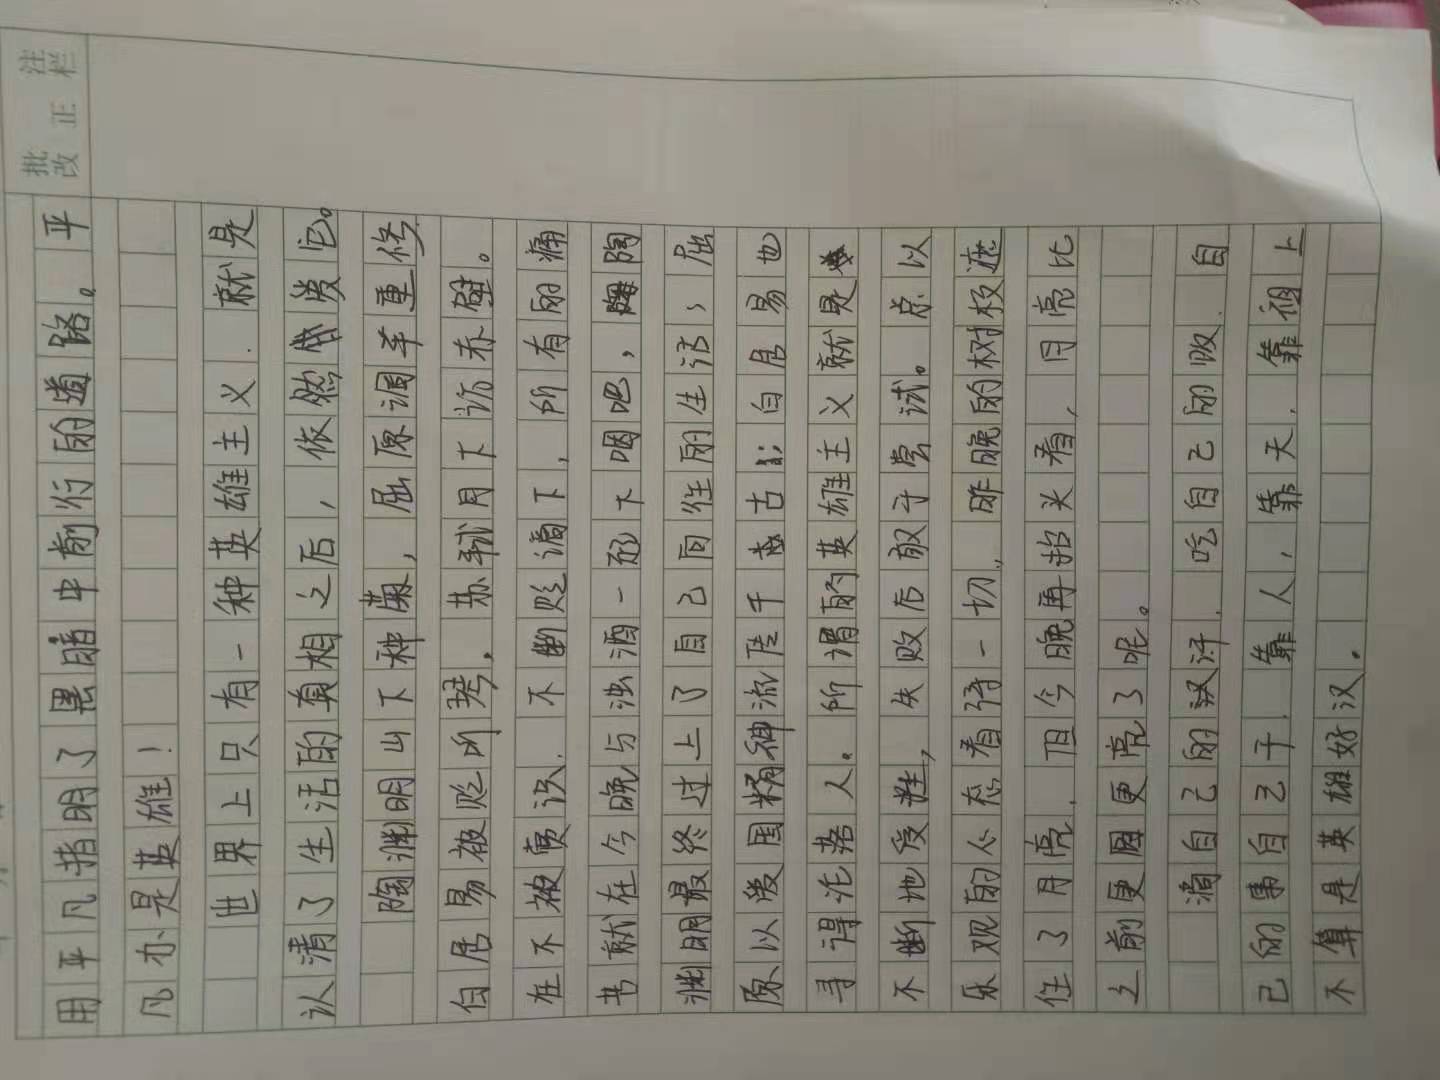 批改 正 注栏
用平凡指明了黑暗中前行的道路。平
凡亦是英雄！
世界上只有一种英雄主义.就是
认清了生活的真相之后，依然爱它。
陶渊明山下种菊，屈原调羊重修
白居易被贬听琴，苏轼月下访赤壁。
在不被赏识.不断贬谪下，所有的痛
苦就在今晚与浊酒一形下咽吧，陶
渊明最终过上了自己向往的生活；屈
原以爱国精神流芳千古；白居易也
寻得光落人。所谓的英雄主义就是
不断地受挫，失败后敢于尝试。总以
乐观的心态看待一切.昨晚的树枝遮
住了月亮.但今晚再抬头看，月亮比
之前更圆更亮了呢。
滴自己的汗.吃自己的饭.自
己的事自己干.靠人，靠天，靠祖上
不算是英雄好汉.